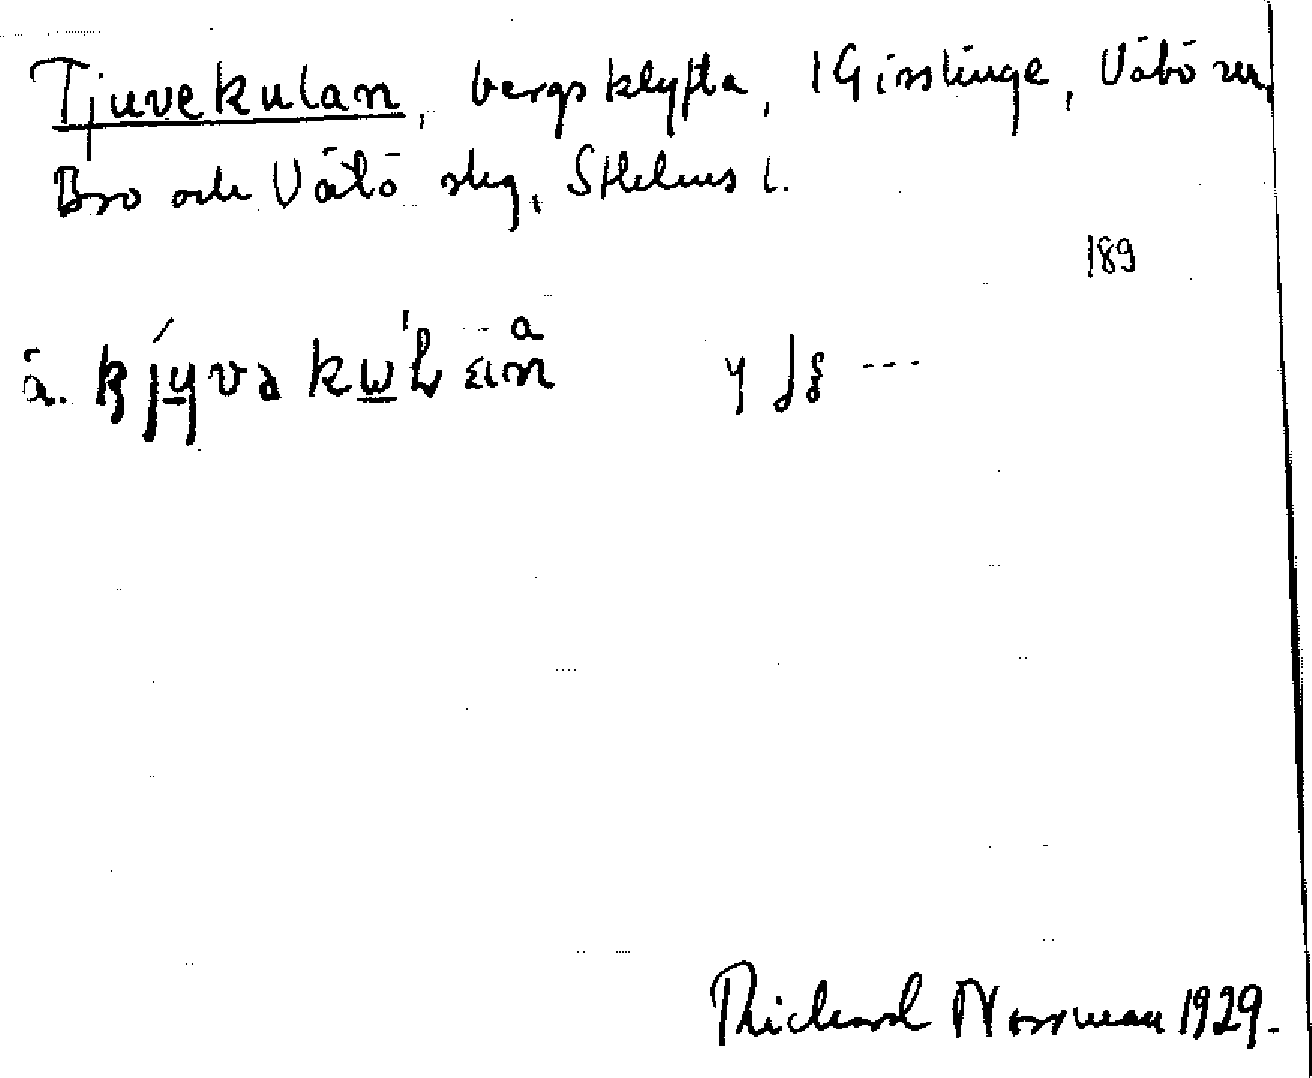 Tjuvekulan, bergsklyfta, 1 Gisslinge, Vätö sn,
Bro och Vätö skg, Sthlms l.
189
å.
Rickard Norrman 1929.